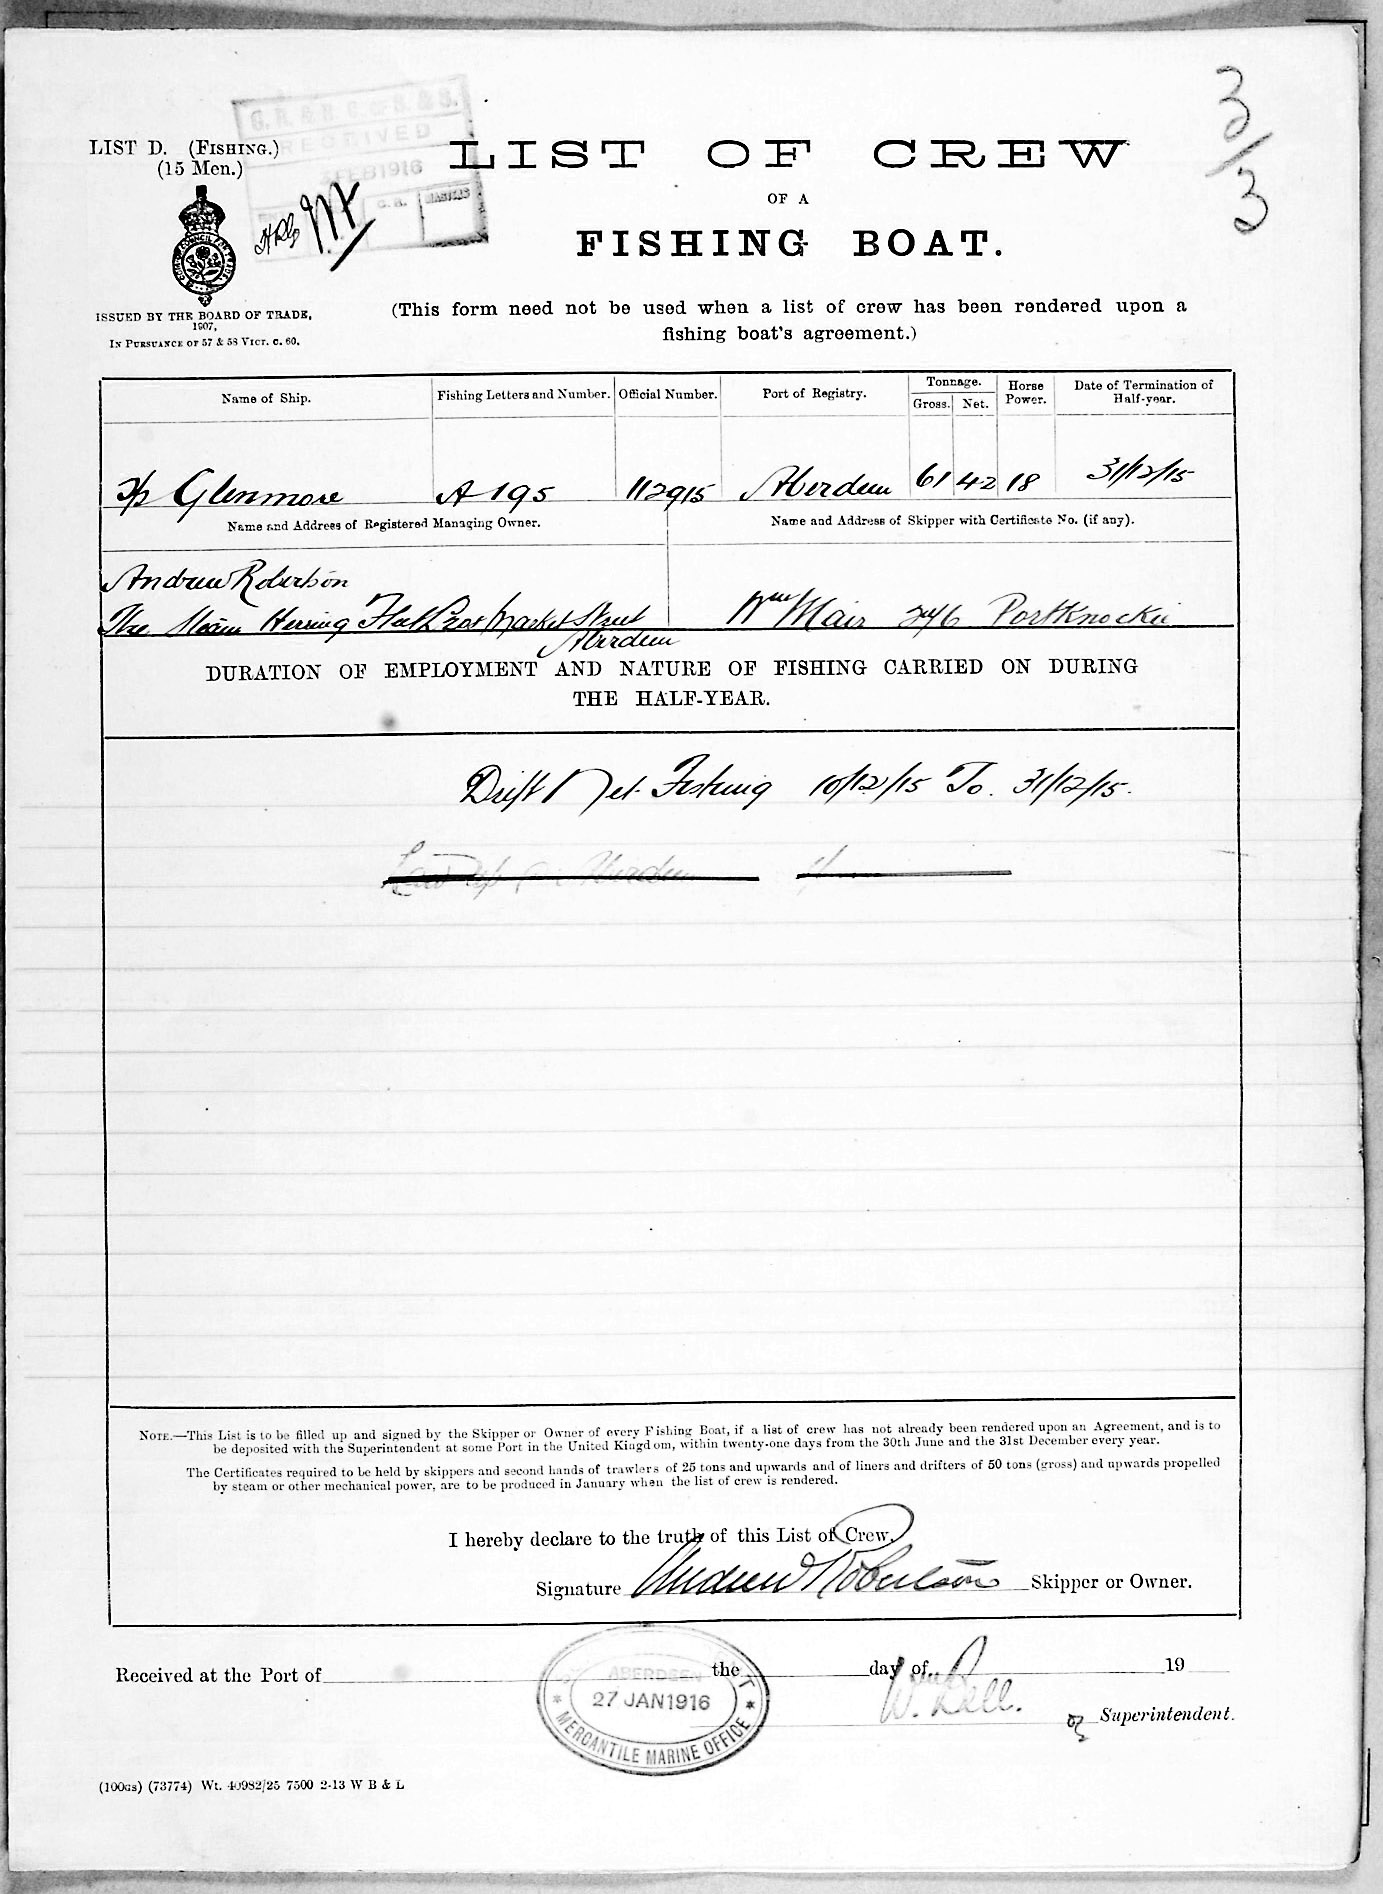 3/3
G. R. & R. G. of S. & S.
RECEIVED
FEB 1916
G. R.
MASTERS
LIST D. (FISHING.)
(15 Men.)
LIST OF CREW
OF A
FISHING BOAT.
ISSUED BY THE BOARD OF TRADE,
1907,
IN PURSUANCE OF 57 & 58 VICT. C. 60.
(This form need not be used when a list of crew has been rendered upon a
fishing boat's agreement.)
Name of Ship.
Fishing Letters and Number.
Official Number.
Port of Registry.
Tonnage.
Gross.
Net.
Horse
Power.
Date of Termination of
Half-year.
Glenmore
A 195
112915
Aberdeen
61
42
18
31/12/15
Name and Address of Registered Managing Owner.
Name and Address of Skipper with Certificate No. (if any).
Andrew Robertson
The Steam Herring Fleet Market Street
Aberdeen
Wm Mair Portknockie
DURATION OF EMPLOYMENT AND NATURE OF FISHING CARRIED ON DURING
THE HALF-YEAR.
Drift Net Fishing 10/12/15 To. 31/12/15.
Laid up Aberdeen
NOTE.—This List is to be filled up and signed by the Skipper or Owner of every Fishing Boat, if a list of crew has not already been rendered upon an Agreement, and is to
be deposited with the Superintendent at some Port in the United Kingdom, within twenty-one days from the 30th June and the 31st December every year.
The Certificates required to be held by skippers and second hands of trawlers of 25 tons and upwards and of liners and drifters of 50 tons (gross) and upwards propelled
by steam or other mechanical power, are to be produced in January when the list of crew is rendered.
I hereby declare to the truth of this List of Crew.
Signature Andrew Robertson Skipper or Owner.
Received at the Port of the day of 19
ABERDEEN
27 JAN 1916
MERCANTILE MARINE OFFICE
W. Bell.
Superintendent.
(100GS) (73774) Wt. 40982/25 7500 2-13 W B & L